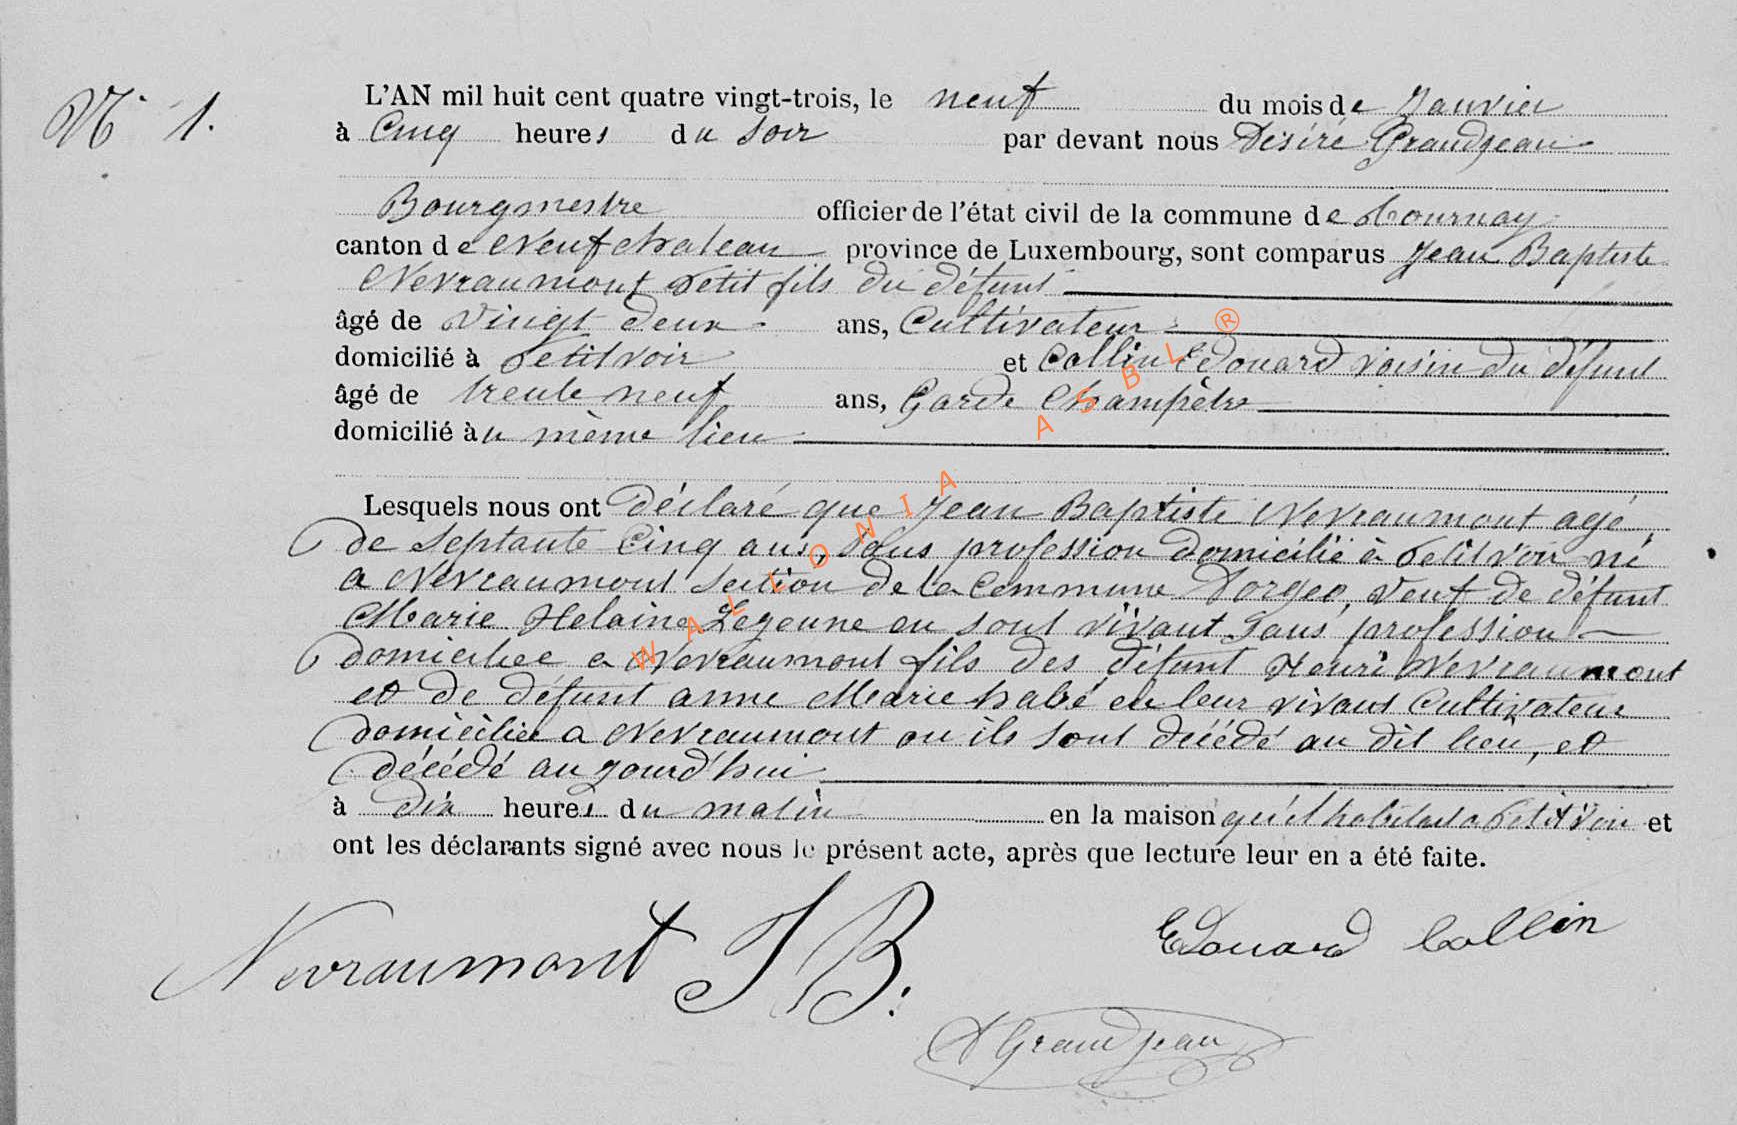 N° 1.
L'AN mil huit cent quatre vingt-trois, le neuf du mois de Janvier
à Cinq heures du soir par devant nous Désiré Grandjean
Bourgmestre officier de l'état civil de la commune de Tournay
canton de Neufchateau province de Luxembourg, sont comparus Jean Baptiste
Nevraumont petit fils du défunt
âgé de vingt deux ans, Cultivateur
domicilié à Petitvoir et Collin Edouard voisin du défunt
âgé de trente neuf ans, Garde Champêtre
domicilié au même lieu
Lesquels nous ont déclaré que Jean Baptiste Nevraumont agé
de septante Cinq ans, sans profession domicilié à Petitvoir né
a Nevraumont section de la Commune Dorgeo, veuf de défunt
Marie Helaine Lejeune en sont vivant sans profession
domiciliee a Nevraumont fils des défunt Henri Nevraumont
et de défunt anne Marie habé en leur vivant Cultivateur
domicilie a Nevraumont ou ils sont décédé au dit lieu, et
décédé aujourd'hui
à dix heures du matin en la maison qu'il habitait a Petitvoir et
ont les déclarants signé avec nous le présent acte, après que lecture leur en a été faite.
Nevraumont J B.
Edouard Collin
D Grandjean
WALLONIA ASBL ®